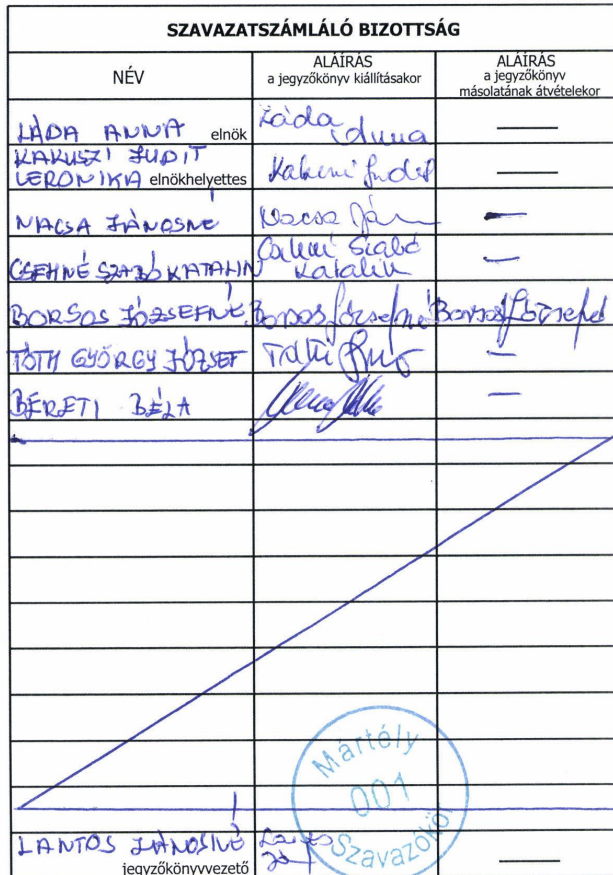 SZAVAZATSZÁMLÁLÓ BIZOTTSÁG
NÉV
ALÁÍRÁS
a jegyzőkönyv kiállításakor
ALÁÍRÁS
a jegyzőkönyv
másolatának átvételekor
LÁDA ANNA elnök Láda Anna —
KAKUSZI JUDIT
VERONIKA elnökhelyettes Judit —
NACSA JÁNOSNÉ Nacsa —
CSEHNÉ SZABÓ KATALIN Csehné Szabó
Katalin —
BORSOS JÓZSEFNÉ Borsos Józsefné Borsos Józsefné
TÓTH GYÖRGY JÓZSEF Tóth —
BERETI BÉLA —
Mártély
001
Szavazókör
LANTOS JÁNOSNÉ Lantos
jegyzőkönyvvezető —